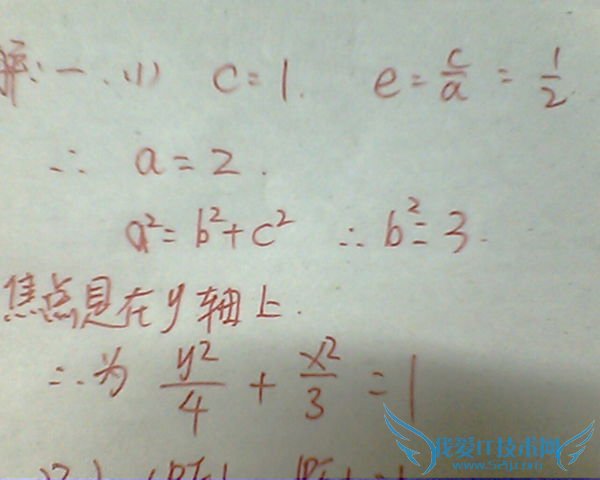 解:一、(1) c=1. e=c/a=1/2
∴ a=2.
a²=b²+c² ∴ b²=3.
焦点是在y轴上.
∴为 y²/4 + x²/3 =1
我爱IT技术网